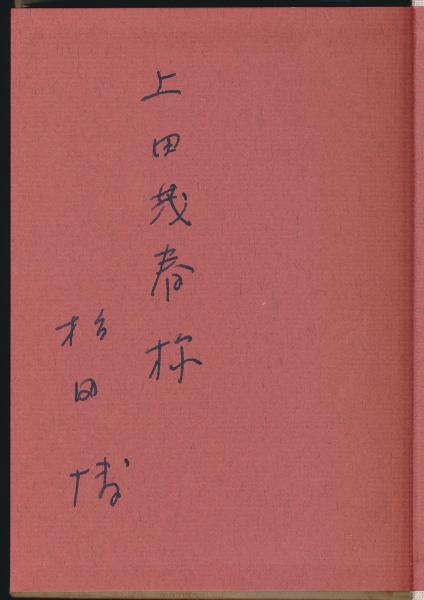 上田茂春様
杉田博